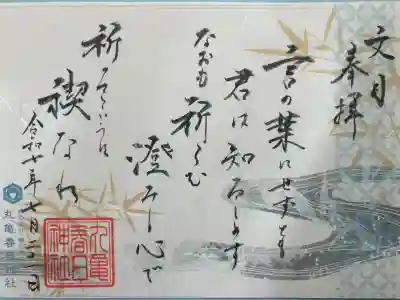 文月
奉拝
言の葉にせずとも
君は知ろしめす
なおも祈らむ
澄みし心で
祈
禊なれ
令和七年七月 日
丸亀
春日
神社
丸亀春日神社